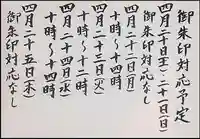 御朱印対応予定
四月二十日(土)・二十一日(日)
御朱印対応なし
四月二十二日(月)
十時〜十四時
四月二十三日(火)
十時〜十二時
四月二十四日(水)
十時〜十四時
四月二十五日(木)
御朱印対応なし